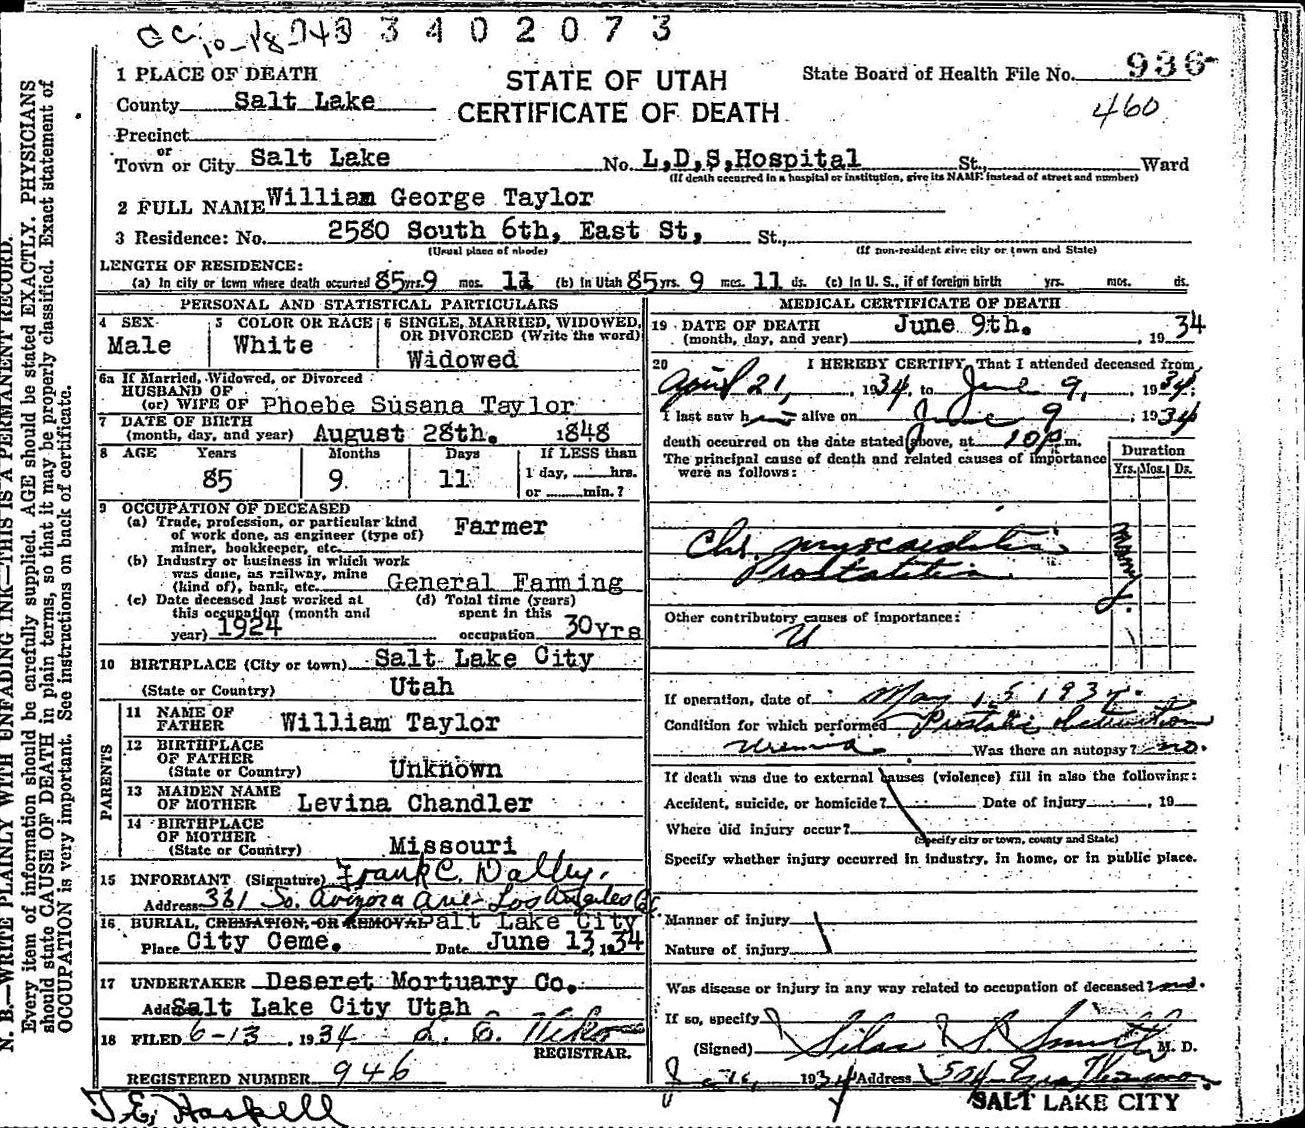 3402073
1 PLACE OF DEATH
STATE OF UTAH
CERTIFICATE OF DEATH
State Board of Health File No. 936
460
County Salt Lake
Precinct
or
Town or City Salt Lake No. L,D,S,Hospital St., Ward
(If death occurred in a hospital or institution, give its NAME instead of street and number)
2 FULL NAME William George Taylor
3 Residence: No. 2580 South 6th, East St, St.,
(Usual place of abode) (If non-resident give city or town and State)
LENGTH OF RESIDENCE:
(a) In city or town where death occurred 85 yrs. 9 mos. 11 (b) In Utah 85 yrs. 9 mos. 11 ds. (c) In U. S., if of foreign birth yrs. mos. ds.
PERSONAL AND STATISTICAL PARTICULARS
4 SEX
Male
5 COLOR OR RACE
White
6 SINGLE, MARRIED, WIDOWED,
OR DIVORCED (Write the word)
Widowed
6a If Married, Widowed, or Divorced
HUSBAND OF
(or) WIFE OF Phoebe Susana Taylor
7 DATE OF BIRTH
(month, day, and year) August 28th. 1848
8 AGE Years Months Days If LESS than
85 9 11 1 day, hrs.
or min.?
9 OCCUPATION OF DECEASED
(a) Trade, profession, or particular kind
of work done, as engineer (type of)
miner, bookkeeper, etc. Farmer
(b) Industry or business in which work
was done, as railway, mine
(kind of), bank, etc. General Farming
(c) Date deceased last worked at
this occupation (month and
year) 1924
(d) Total time (years)
spent in this
occupation 30Yrs
10 BIRTHPLACE (City or town) Salt Lake City
(State or Country) Utah
PARENTS
11 NAME OF
FATHER William Taylor
12 BIRTHPLACE
OF FATHER
(State or Country) Unknown
13 MAIDEN NAME
OF MOTHER Levina Chandler
14 BIRTHPLACE
OF MOTHER
(State or Country) Missouri
15 INFORMANT (Signature) Frank C. Dalley.
Address 331 So. Arizona Ave Los Angeles
16 BURIAL, CREMATION, OR REMOVAL Salt Lake City
Place City Ceme. Date June 13, 1934
17 UNDERTAKER Deseret Mortuary Co.
Address Salt Lake City Utah
18 FILED 6-13, 1934
REGISTRAR.
REGISTERED NUMBER 946
T. E. Haskell
MEDICAL CERTIFICATE OF DEATH
19 DATE OF DEATH
(month, day, and year) June 9th. , 1934
20 I HEREBY CERTIFY, That I attended deceased from
April 21, 1934, to June 9, 1934;
I last saw him alive on June 9, 1934
death occurred on the date stated above, at 10 p m.
The principal cause of death and related causes of importance
were as follows:
Duration
Yrs. Mos. Ds.
Chr. myocarditis
Prostatitis
many y.
Other contributory causes of importance:
U
If operation, date of May 15 1934.
Condition for which performed Prostatic obstruction
uremia Was there an autopsy? no.
If death was due to external causes (violence) fill in also the following:
Accident, suicide, or homicide? Date of injury , 19
Where did injury occur?
(Specify city or town, county and State)
Specify whether injury occurred in industry, in home, or in public place.
Manner of injury
Nature of injury
Was disease or injury in any way related to occupation of deceased? no.
If so, specify
(Signed) Silas S. Smith M. D.
1934 Address
SALT LAKE CITY
N. B.—WRITE PLAINLY WITH UNFADING INK—THIS IS A PERMANENT RECORD.
Every item of information should be carefully supplied. AGE should be stated EXACTLY. PHYSICIANS
should state CAUSE OF DEATH in plain terms, so that it may be properly classified. Exact statement of
OCCUPATION is very important. See instructions on back of certificate.